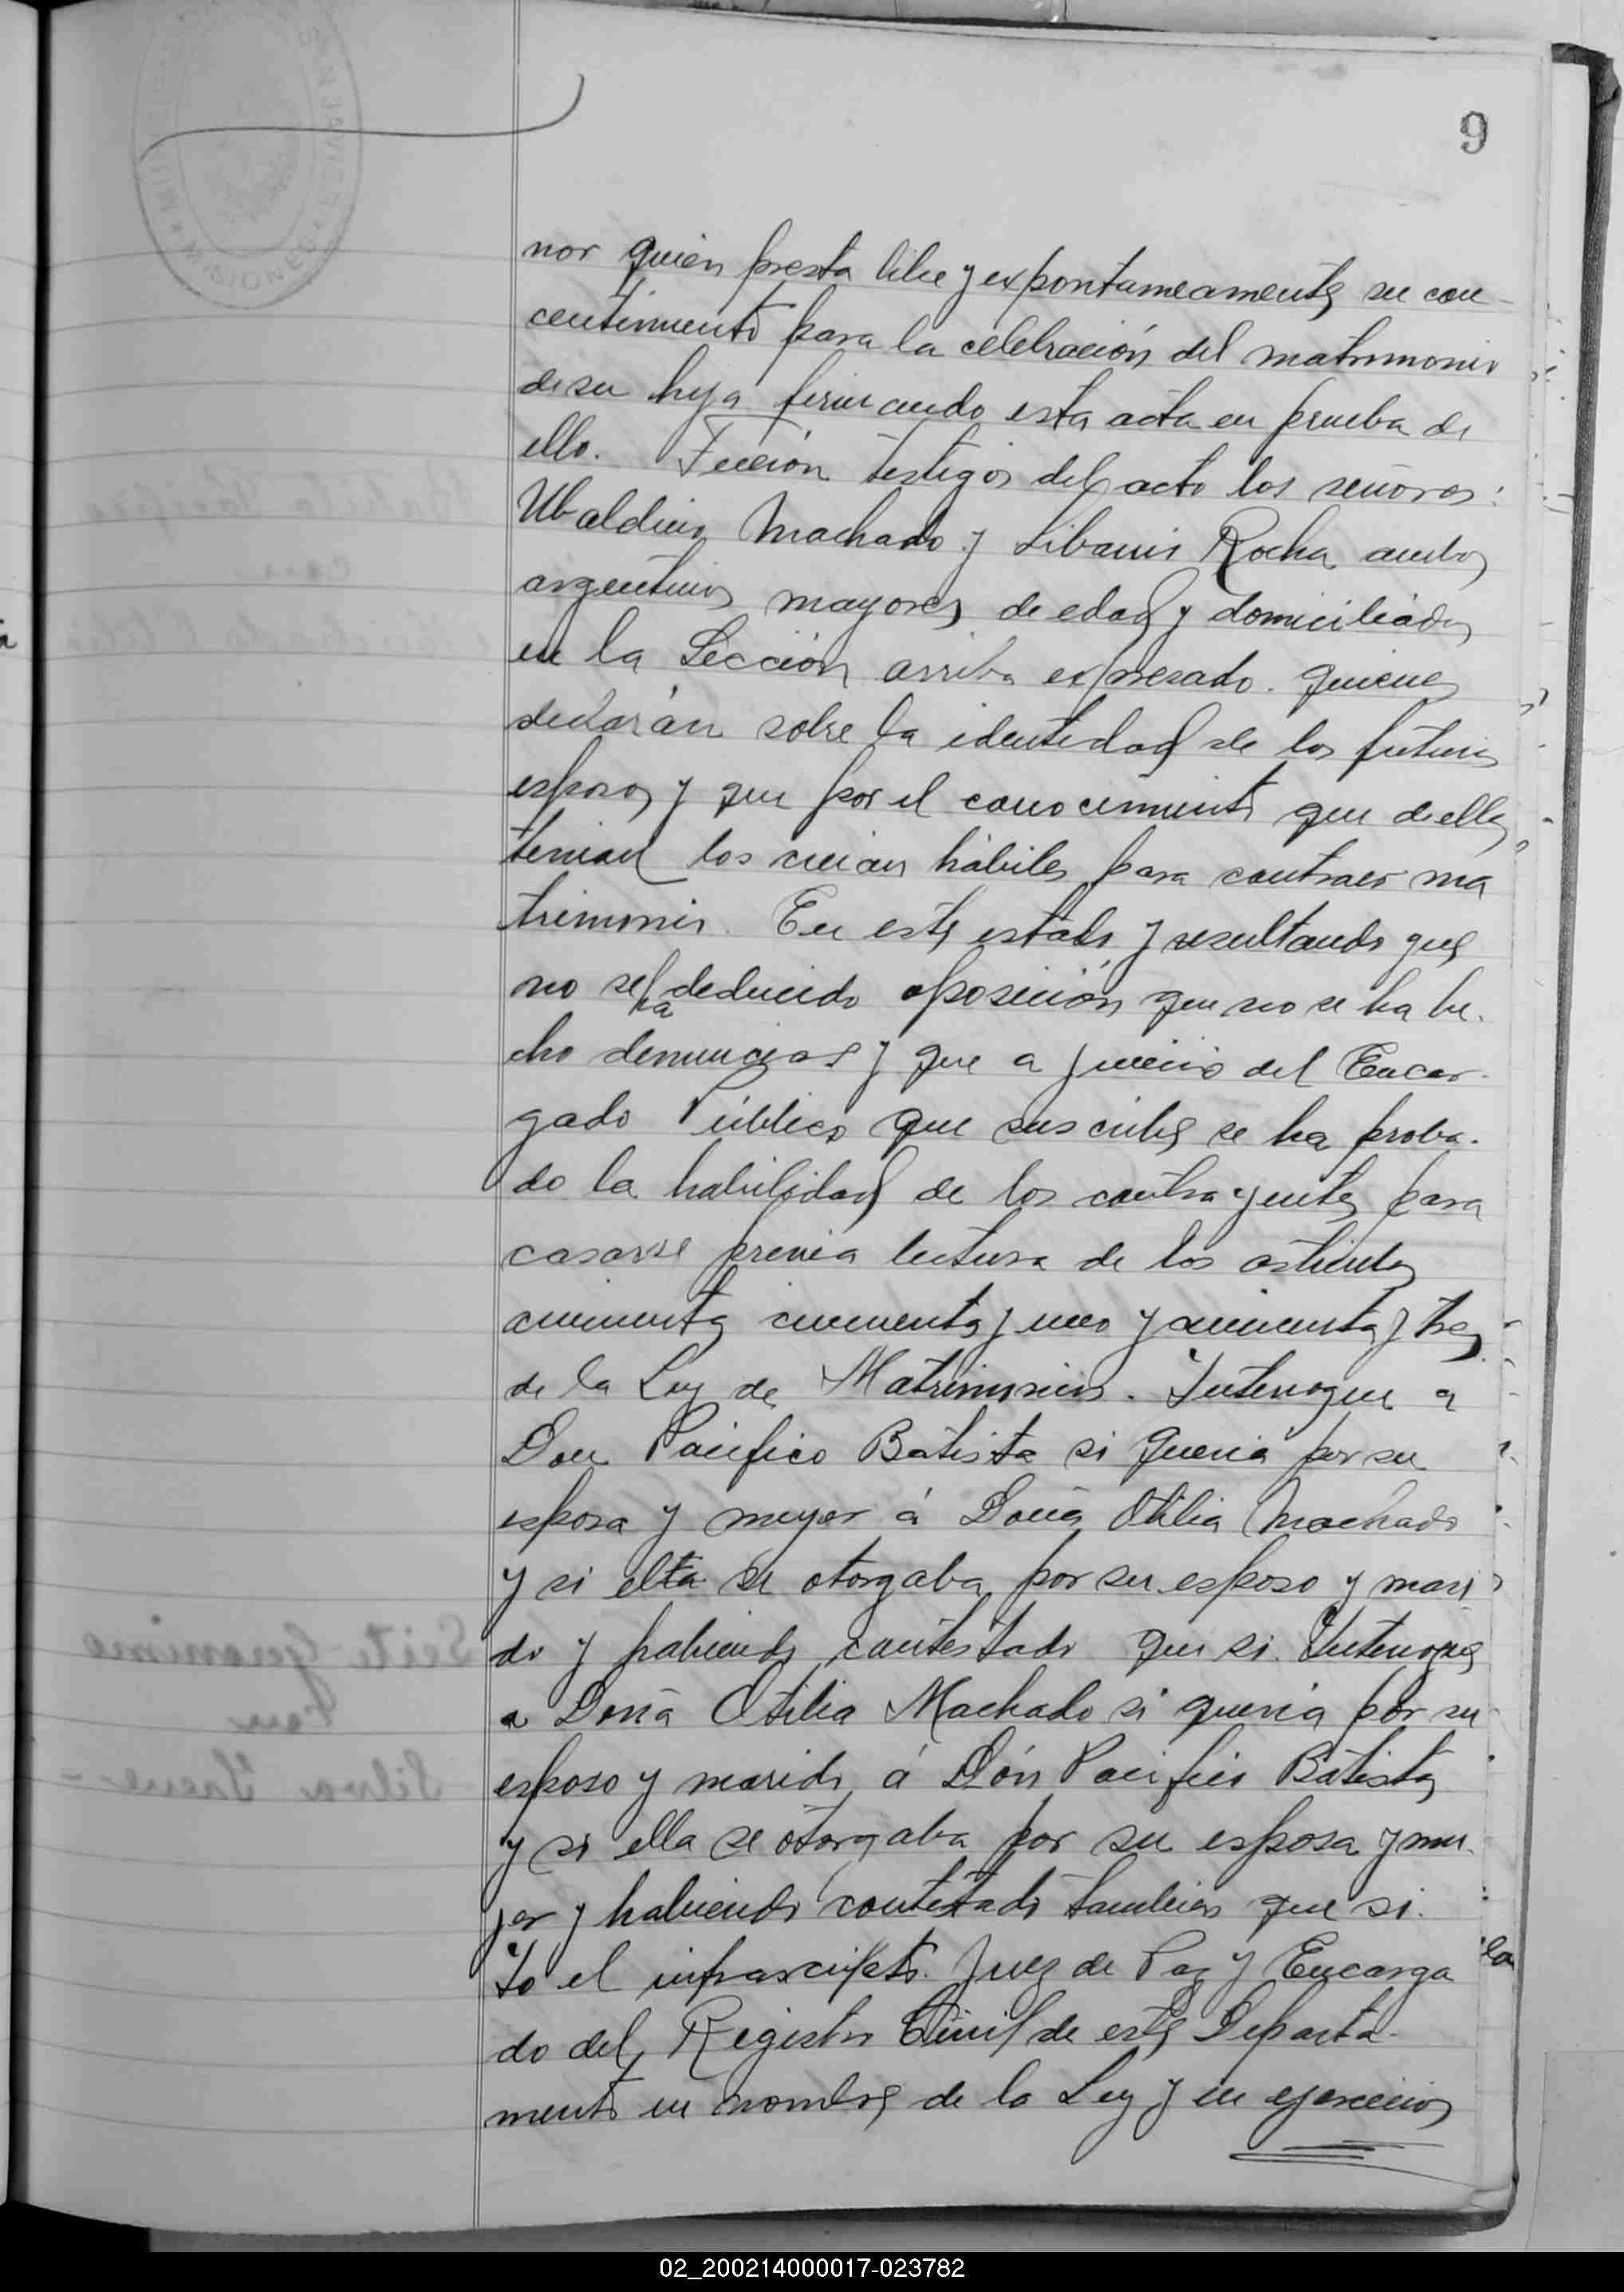 9
nor quien presta libre y expontaneamente su con-
centimiento para la celebración del matrimonio
de su hija firmando esta acta en prueba de
ello. Fueron testigos del acto los señores:
Ubaldino Machado y Libanio Rocha ambos
argentinos mayores de edad y domiciliados
en la Sección arriba expresado. quienes
declarán sobre la identidad de los futuros
esposos y que por el conocimiento que de ellos
tenian los creian hábiles para contraer ma
trimonio. En este estado y resultando que
no se ha deducido oposición que no se ha he-
cho denuncias y que a juicio del Encar-
gado Público que suscribe se ha proba-
do la habilidad de los contrayentes para
casarse previa lectura de los articulos
cincuenta cincuenta y uno y cincuenta y tres
de la Ley de Matrimonio. Interrogue a
Don Pacifico Batista si queria por su
esposa y mujer á Doña Otilia Machado
y si elta se otorgaba por su esposo y mari
do y habiendo contestado que si. Interrogue
a Doña Otilia Machado si queria por su
esposo y marido á Dón Pacifico Batista
y si ella se otorgaba por su esposa y mu-
jer y habiendo contestado tambien que si.
Yo el infrascripto. Juez de Paz y Encarga
do del Registro Civil de este Departa-
mento en nombre de la Ley y en ejercicio
02_200214000017-023782